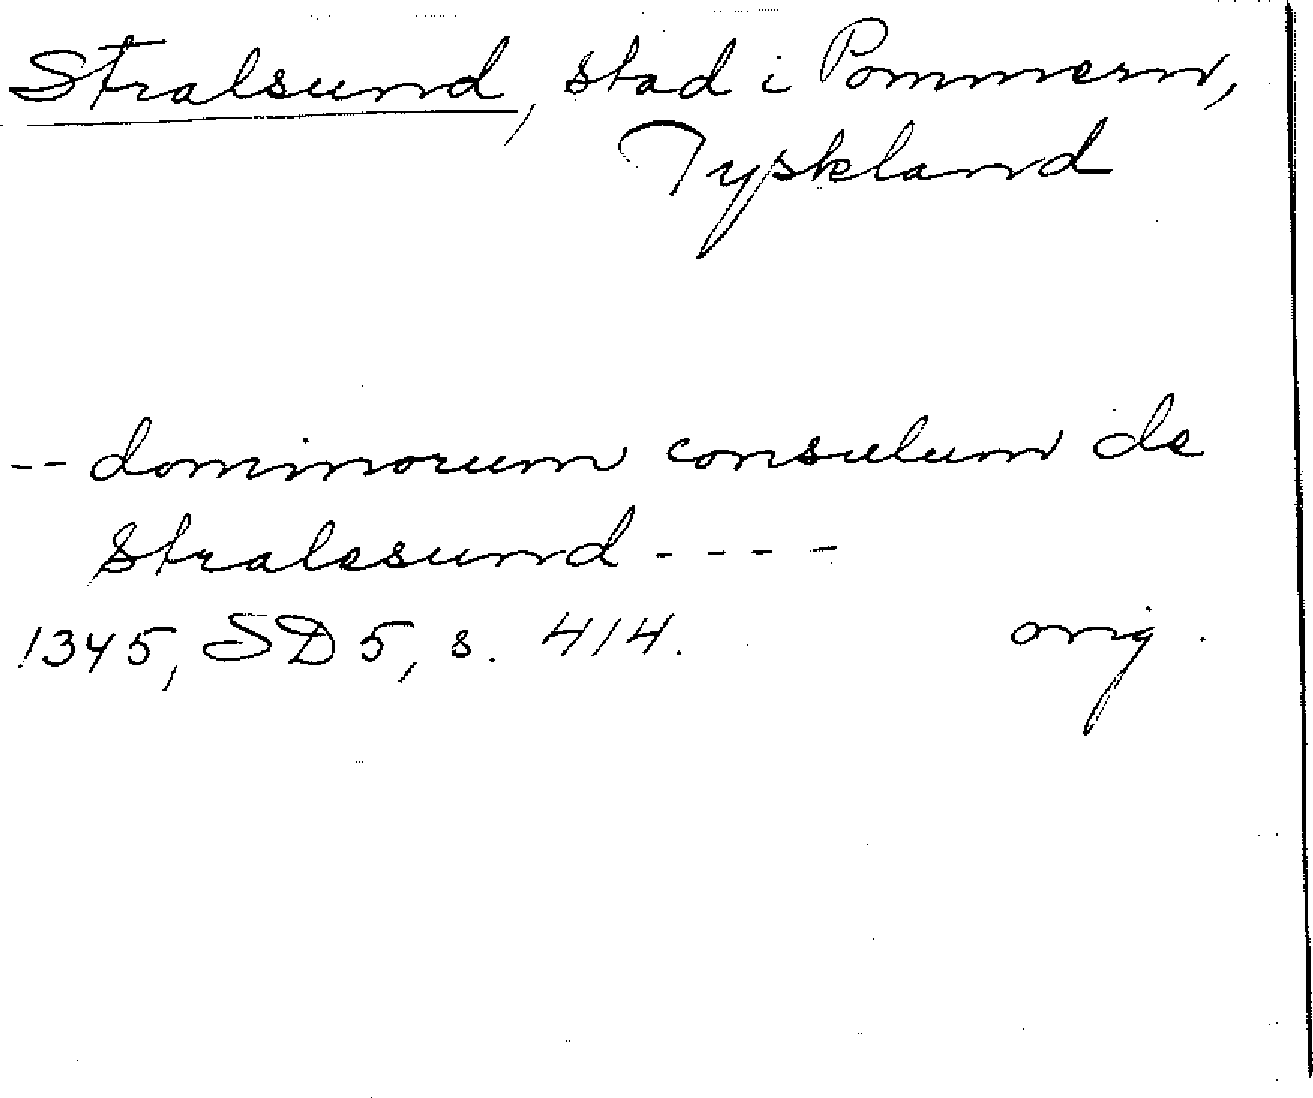 Stralsund, stad i Pommern,
Tyskland
-- dominorum consulum de
Stralessund ----
1345, SD 5, s. 414. orig.